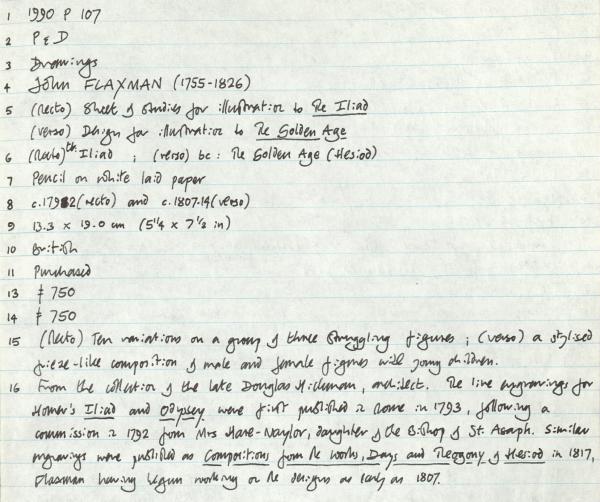 1 1990 P 107
2 P & D
3 Drawings
4 John FLAXMAN (1755-1826)
5 (recto) Sheet of studies for illustration to The Iliad
(verso) Design for illustration to The Golden Age
6 (recto) th Iliad ; (verso) bc : The Golden Age (Hesiod)
7 Pencil on white laid paper
8 c.1792 (recto) and c.1807-14 (verso)
9 13.3 x 19.0 cm (5 1/4 x 7 1/2 in)
10 British
11 Purchased
13 £ 750
14 £ 750
15 (Recto) Ten variations on a group of three struggling figures ; (verso) a stylised
frieze-like composition of male and female figures with young children.
16 From the collection of the late Douglas Hickman, architect. The line engravings for
Homer's Iliad and Odyssey were first published in Rome in 1793, following a
commission in 1792 from Mrs Hare-Naylor, daughter of the Bishop of St. Asaph. Similar
engravings were published as Compositions from the Works, Days and Theogony of Hesiod in 1817,
Flaxman having begun working on the designs as early as 1807.